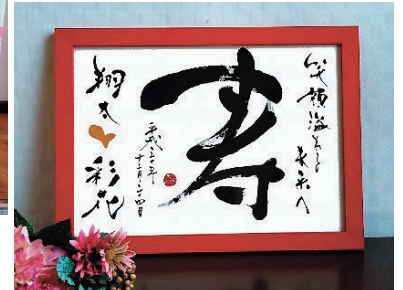 笑顔溢れる
未来へ
寿
平成三十年
十二月二十四日
翔太
彩花